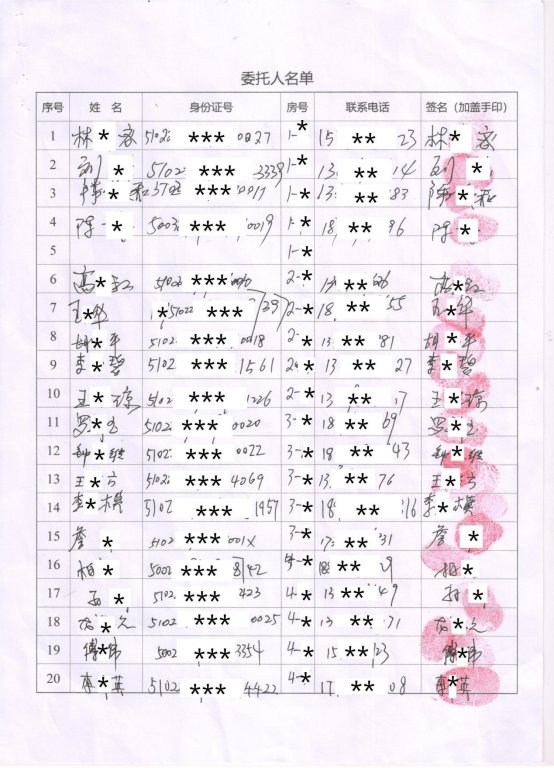 委托人名单
序号 姓 名 身份证号 房号 联系电话 签名（加盖手印）
1 林*容 5102 *** 0027 1-* 15 ** 23 林*容
2 刘* 5102 *** 3339 1-* 13 ** 14 刘*
3 陈* *** 0017 1-* 13 ** 83 陈*
4 陈* 5003 *** 0019 1-* 18 ** 96 陈*
5 1-*
6 高*红 5102 *** 2-* ** 高*红
7 王*华 *5102 *** 739 2-* 18 ** 55 王*华
8 胡*平 5102 *** 0018 2-* 13 ** 81 胡*平
9 李*碧 5102 *** 1561 2-* 13 ** 27 李*碧
10 王*琼 5102 *** 1226 2-* 13 ** 17 王*琼
11 罗* 5102 *** 0020 3-* 18 ** 69 罗*
12 钟* 5102 *** 0022 3-* 18 ** 43 钟*
13 王*方 5102 *** 4069 3-* 13 ** 76 王*方
14 李*模 5102 *** 1957 3-* 18 ** 16 李*模
15 詹* 5102 *** 001X 3-* 17 ** 31 詹*
16 相* 5002 *** 8742 4-* ** 9 相*
17 * 5102 *** 423 4-* 13 ** 49 *
18 龙*元 5102 *** 0025 4-* 13 ** 71 龙*元
19 傅*韦 5002 *** 3354 4-* 15 ** 23 傅*韦
20 李*英 5102 *** 4422 4-* 17 ** 08 李*英